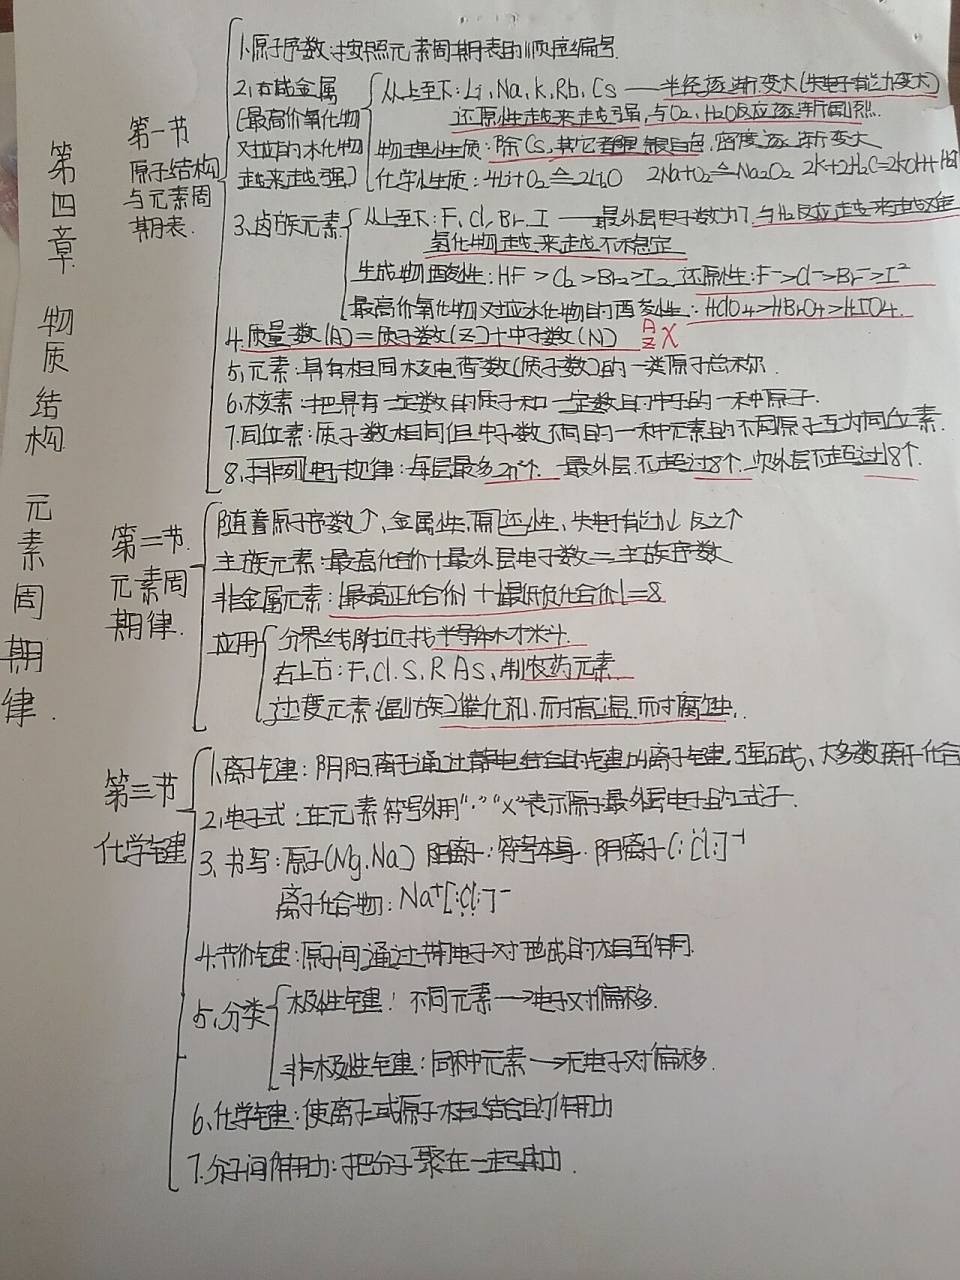 第四章 物质结构 元素周期律.
第一节
原子结构
与元素周
期表.
1.原子序数:按照元素周期表的顺序编号.
2.碱金属
(最高价氧化物
对应的水化物
越来越强)
从上至下:Li、Na、K、Rb、Cs——半径逐渐变大(失电子能力变大)
还原性越来越强,与O₂、H₂O反应逐渐剧烈.
物理性质:除Cs,其它都银白色,密度逐渐变大
化学性质:4Li+O₂≙2Li₂O 2Na+O₂≙Na₂O₂ 2K+2H₂O=2KOH+H₂↑
3、卤族元素
从上至下:F、Cl、Br、I——最外层电子数为7,与H₂反应越来越难
氢化物越来越不稳定
生成物酸性:HF>Cl₂>Br₂>I₂ 还原性:F⁻>Cl⁻>Br⁻>I²
最高价氧化物对应水化物的酸性:HClO₄>HBrO₄>HIO₄.
4.质量数(A)=质子数(Z)+中子数(N) A Z X
5、元素:具有相同核电荷数(质子数)的一类原子总称.
6、核素:把具有一定数目的质子和一定数目中子的一种原子.
7.同位素:质子数相同但中子数不同的一种元素的不同原子互为同位素.
8、排列电子规律:每层最多2n²个. 最外层不超过8个. 次外层不超过18个.
第二节.
元素周
期律.
随着原子序数↑,金属性,还原性,失电子能力↓反之↑
主族元素:最高化合价+最外层电子数=主族序数
非金属元素:|最高正化合价|+|最低负化合价|=8
应用
分界线附近找半导体材料.
右上方:F、Cl、S、P、As、制农药元素
过渡元素(副族)催化剂,耐高温,耐腐蚀.
第三节
化学键
1、离子键:阴阳离子通过静电结合的键叫离子键.强碱、大多数离子化合
2、电子式:在元素符号外用"·""×"表示原子最外层电子的式子.
3、书写:原子(Mg、Na) 阳离子:符号本身. 阴离子(:Cl:]⁻¹
离子化合物:Na⁺[:Cl:]⁻
4.共价键:原子间通过共用电子对形成的相互作用.
5、分类
极性键:不同元素→电子对偏移.
非极性键:同种元素→无电子对偏移.
6、化学键:使离子或原子相结合的作用力
7.分子间作用力:把分子聚在一起的力.